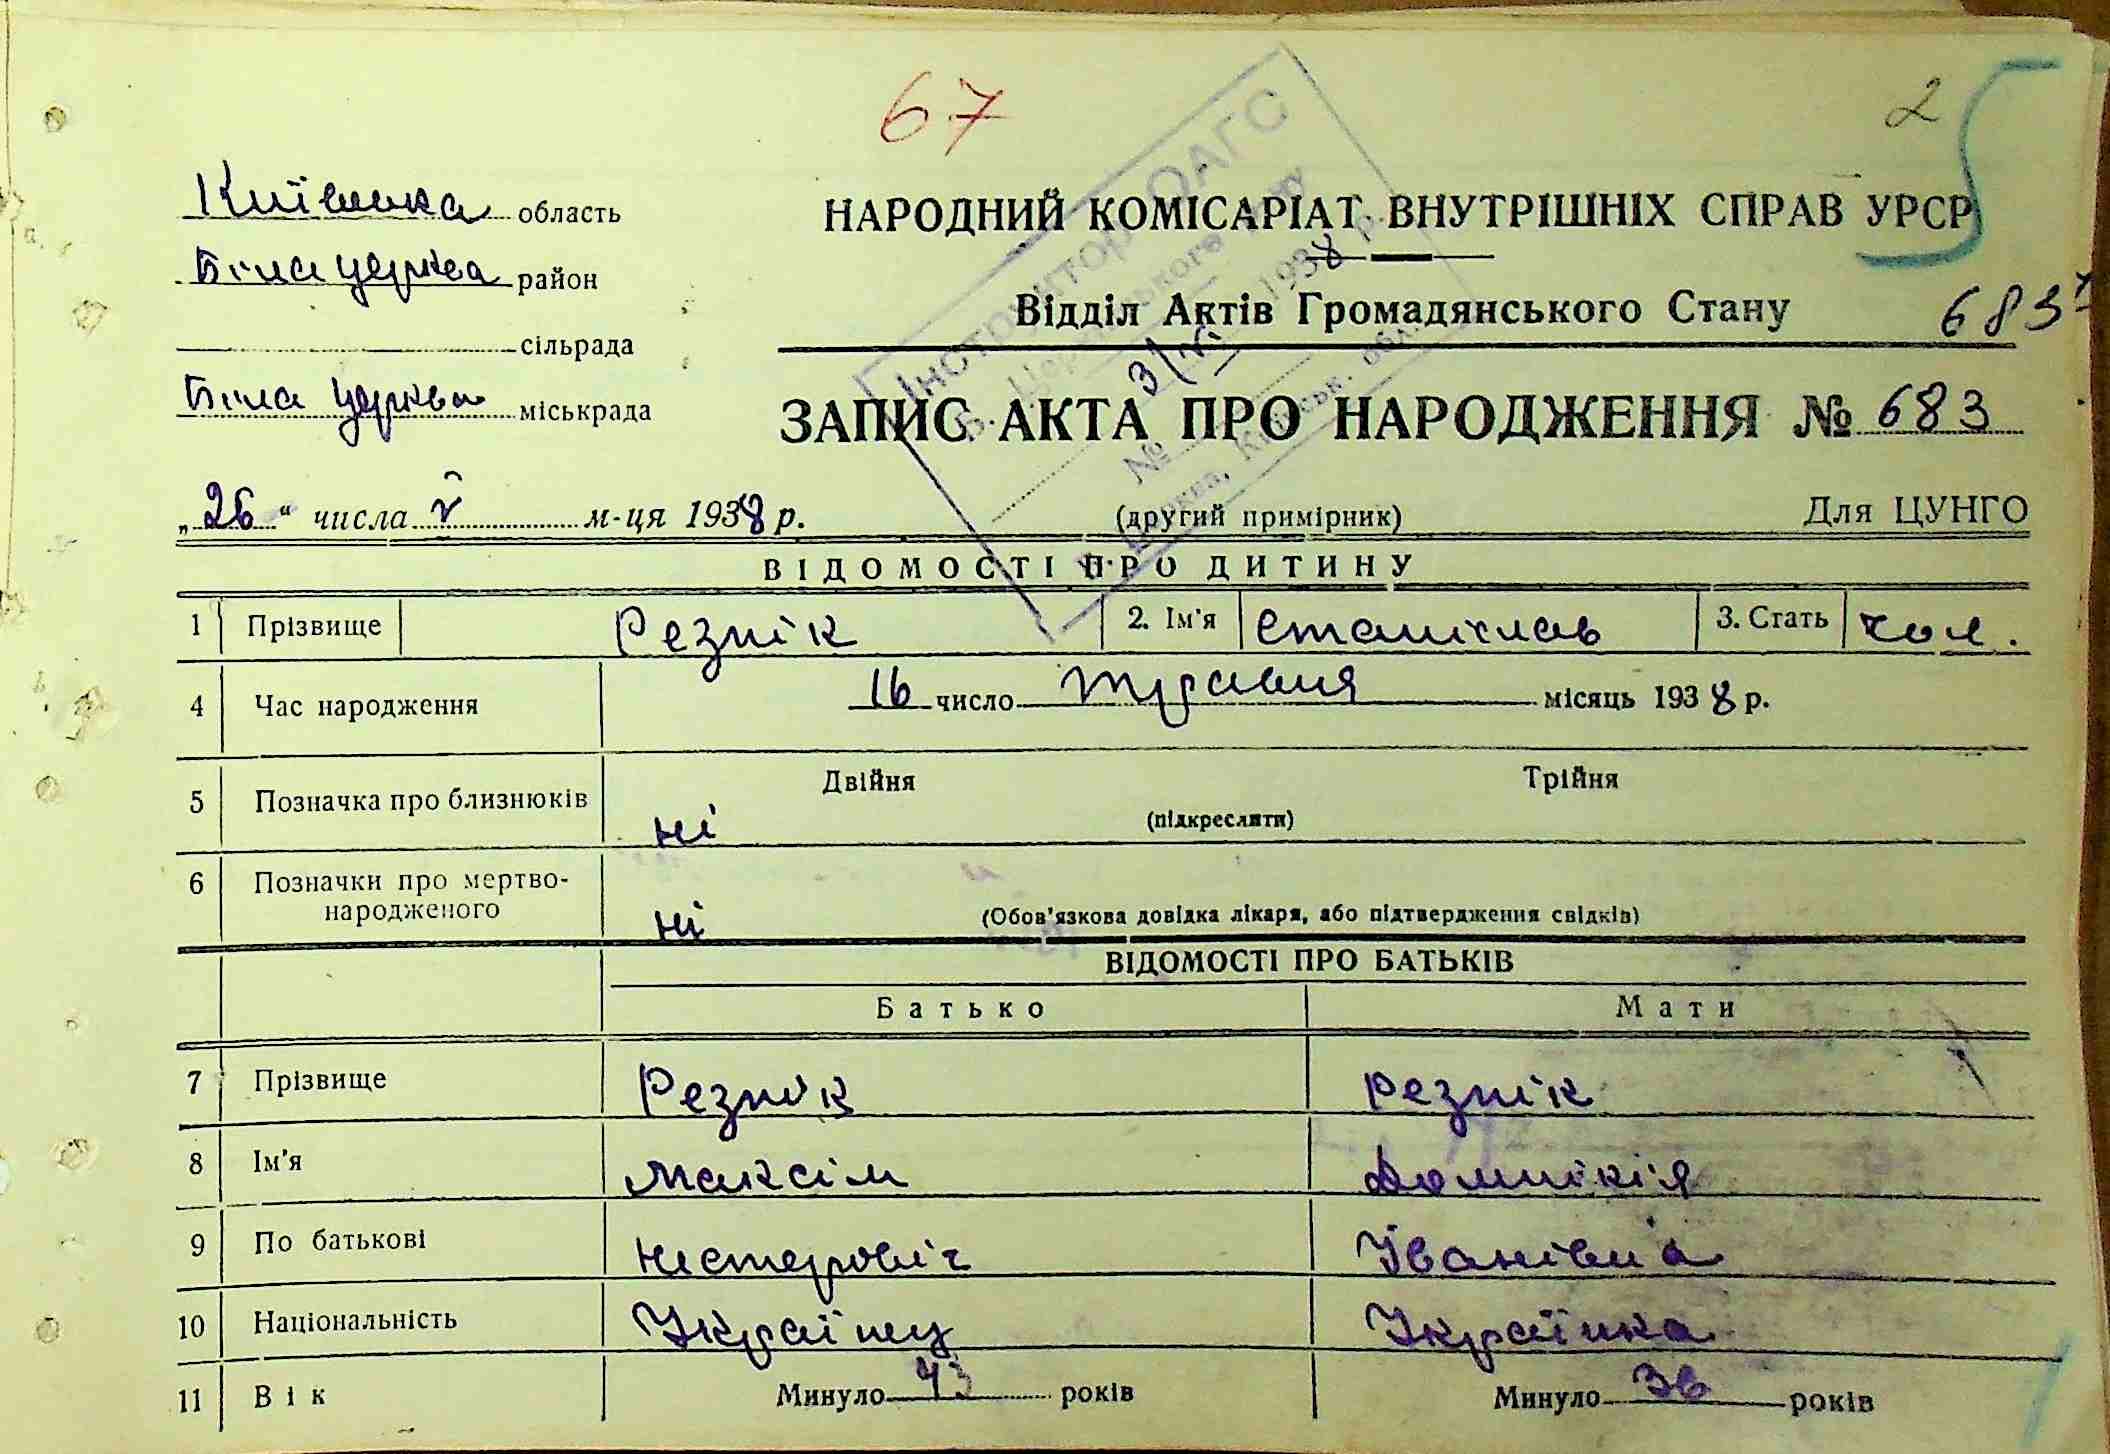 67
2
5
Київська область
НАРОДНИЙ КОМІСАРІАТ ВНУТРІШНІХ СПРАВ УРСР
Біла церква район
Відділ Актів Громадянського Стану
683
сільрада
Біла церква міськрада
ЗАПИС АКТА ПРО НАРОДЖЕННЯ № 683
Інструктор ОАГС
1938 р.
№
„26“ числа V м-ця 1938 р.
(другий примірник)
Для ЦУНГО
ВІДОМОСТІ ПРО ДИТИНУ
1 Прізвище Резнік 2. Ім'я Станіслав 3. Стать чол.
4 Час народження 16 число травня місяць 1938 р.
5 Позначка про близнюків ні Двійня Трійня
(підкреслити)
6 Позначки про мертво-
народженого ні (Обов'язкова довідка лікаря, або підтвердження свідків)
ВІДОМОСТІ ПРО БАТЬКІВ
Батько Мати
7 Прізвище Резнік Резнік
8 Ім'я Максім Домнікія
9 По батькові Нестеровіч Іванівна
10 Національність Українец Українка
11 Вік Минуло 43 років Минуло років